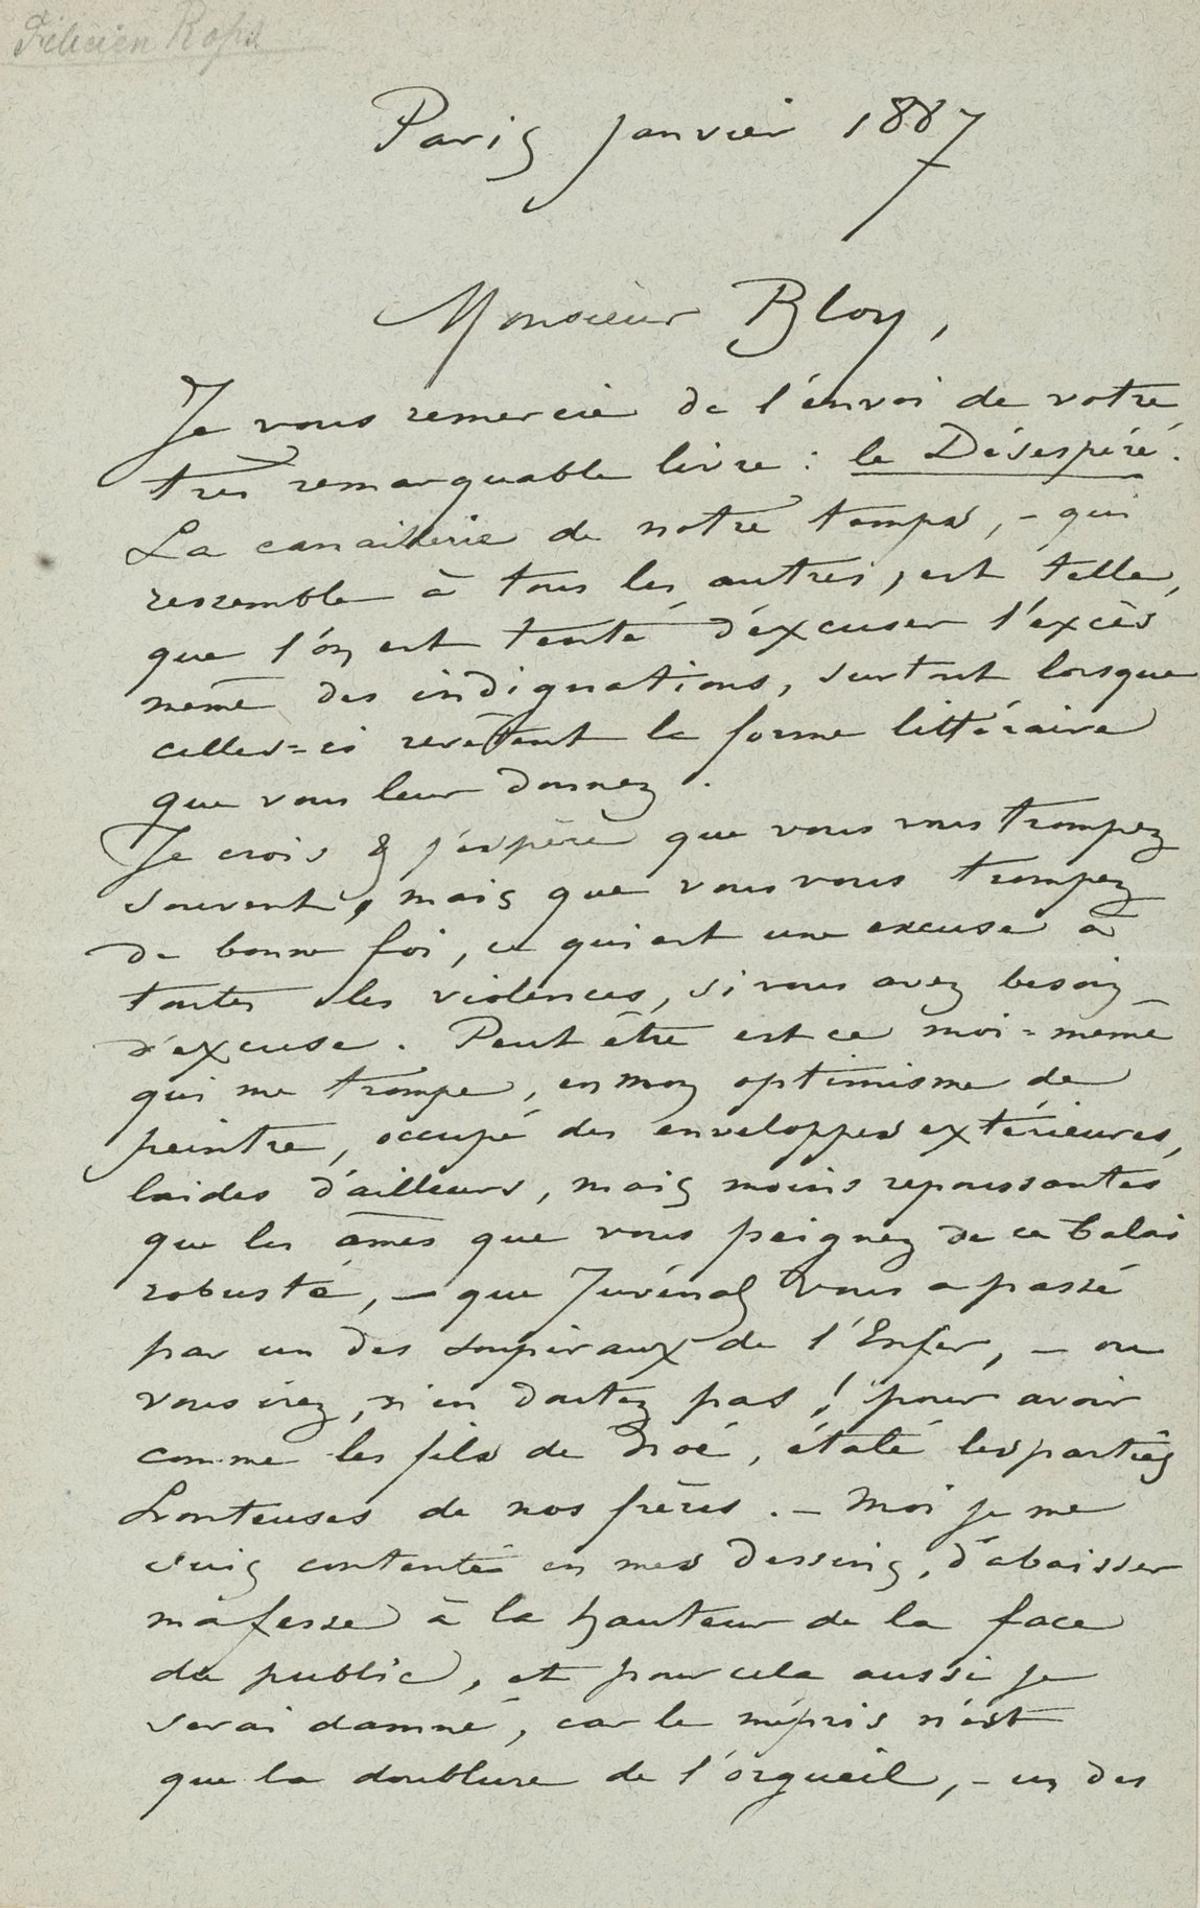 Félicien Rops
Paris janvier 1887
Monsieur Bloy,
Je vous remercie de l'envoi de votre
très remarquable livre : le Désespéré.
La canaillerie de notre temps, – qui
ressemble à tous les autres, est telle,
que l'on est tenté d'excuser l'excès
même des indignations, surtout lorsque
celles=ci revêtent la forme littéraire
que vous leur donnez.
Je crois & j'espère que vous vous trompez
souvent, mais que vous vous trompez
de bonne foi, ce qui est une excuse à
toutes les violences, si vous avez besoin
d'excuse. Peut être est ce moi=même
qui me trompe, en mon optimisme de
peintre, occupé des enveloppes extérieures,
laides d'ailleurs, mais moins repoussantes
que les âmes que vous peignez de ce balai
robuste, – que Juvénal vous a passé
par un des soupiraux de l'Enfer, – où
vous irez, n'en doutez pas ! pour avoir
comme les fils de Noé, étalé les parties
honteuses de nos frères. – Moi je me
suis contenté en mes dessins, d'abaisser
ma fesse à la hauteur de la face
du public, et pour cela aussi je
serai damné, car le mépris n'est
que la doublure de l'orgueil, – un des